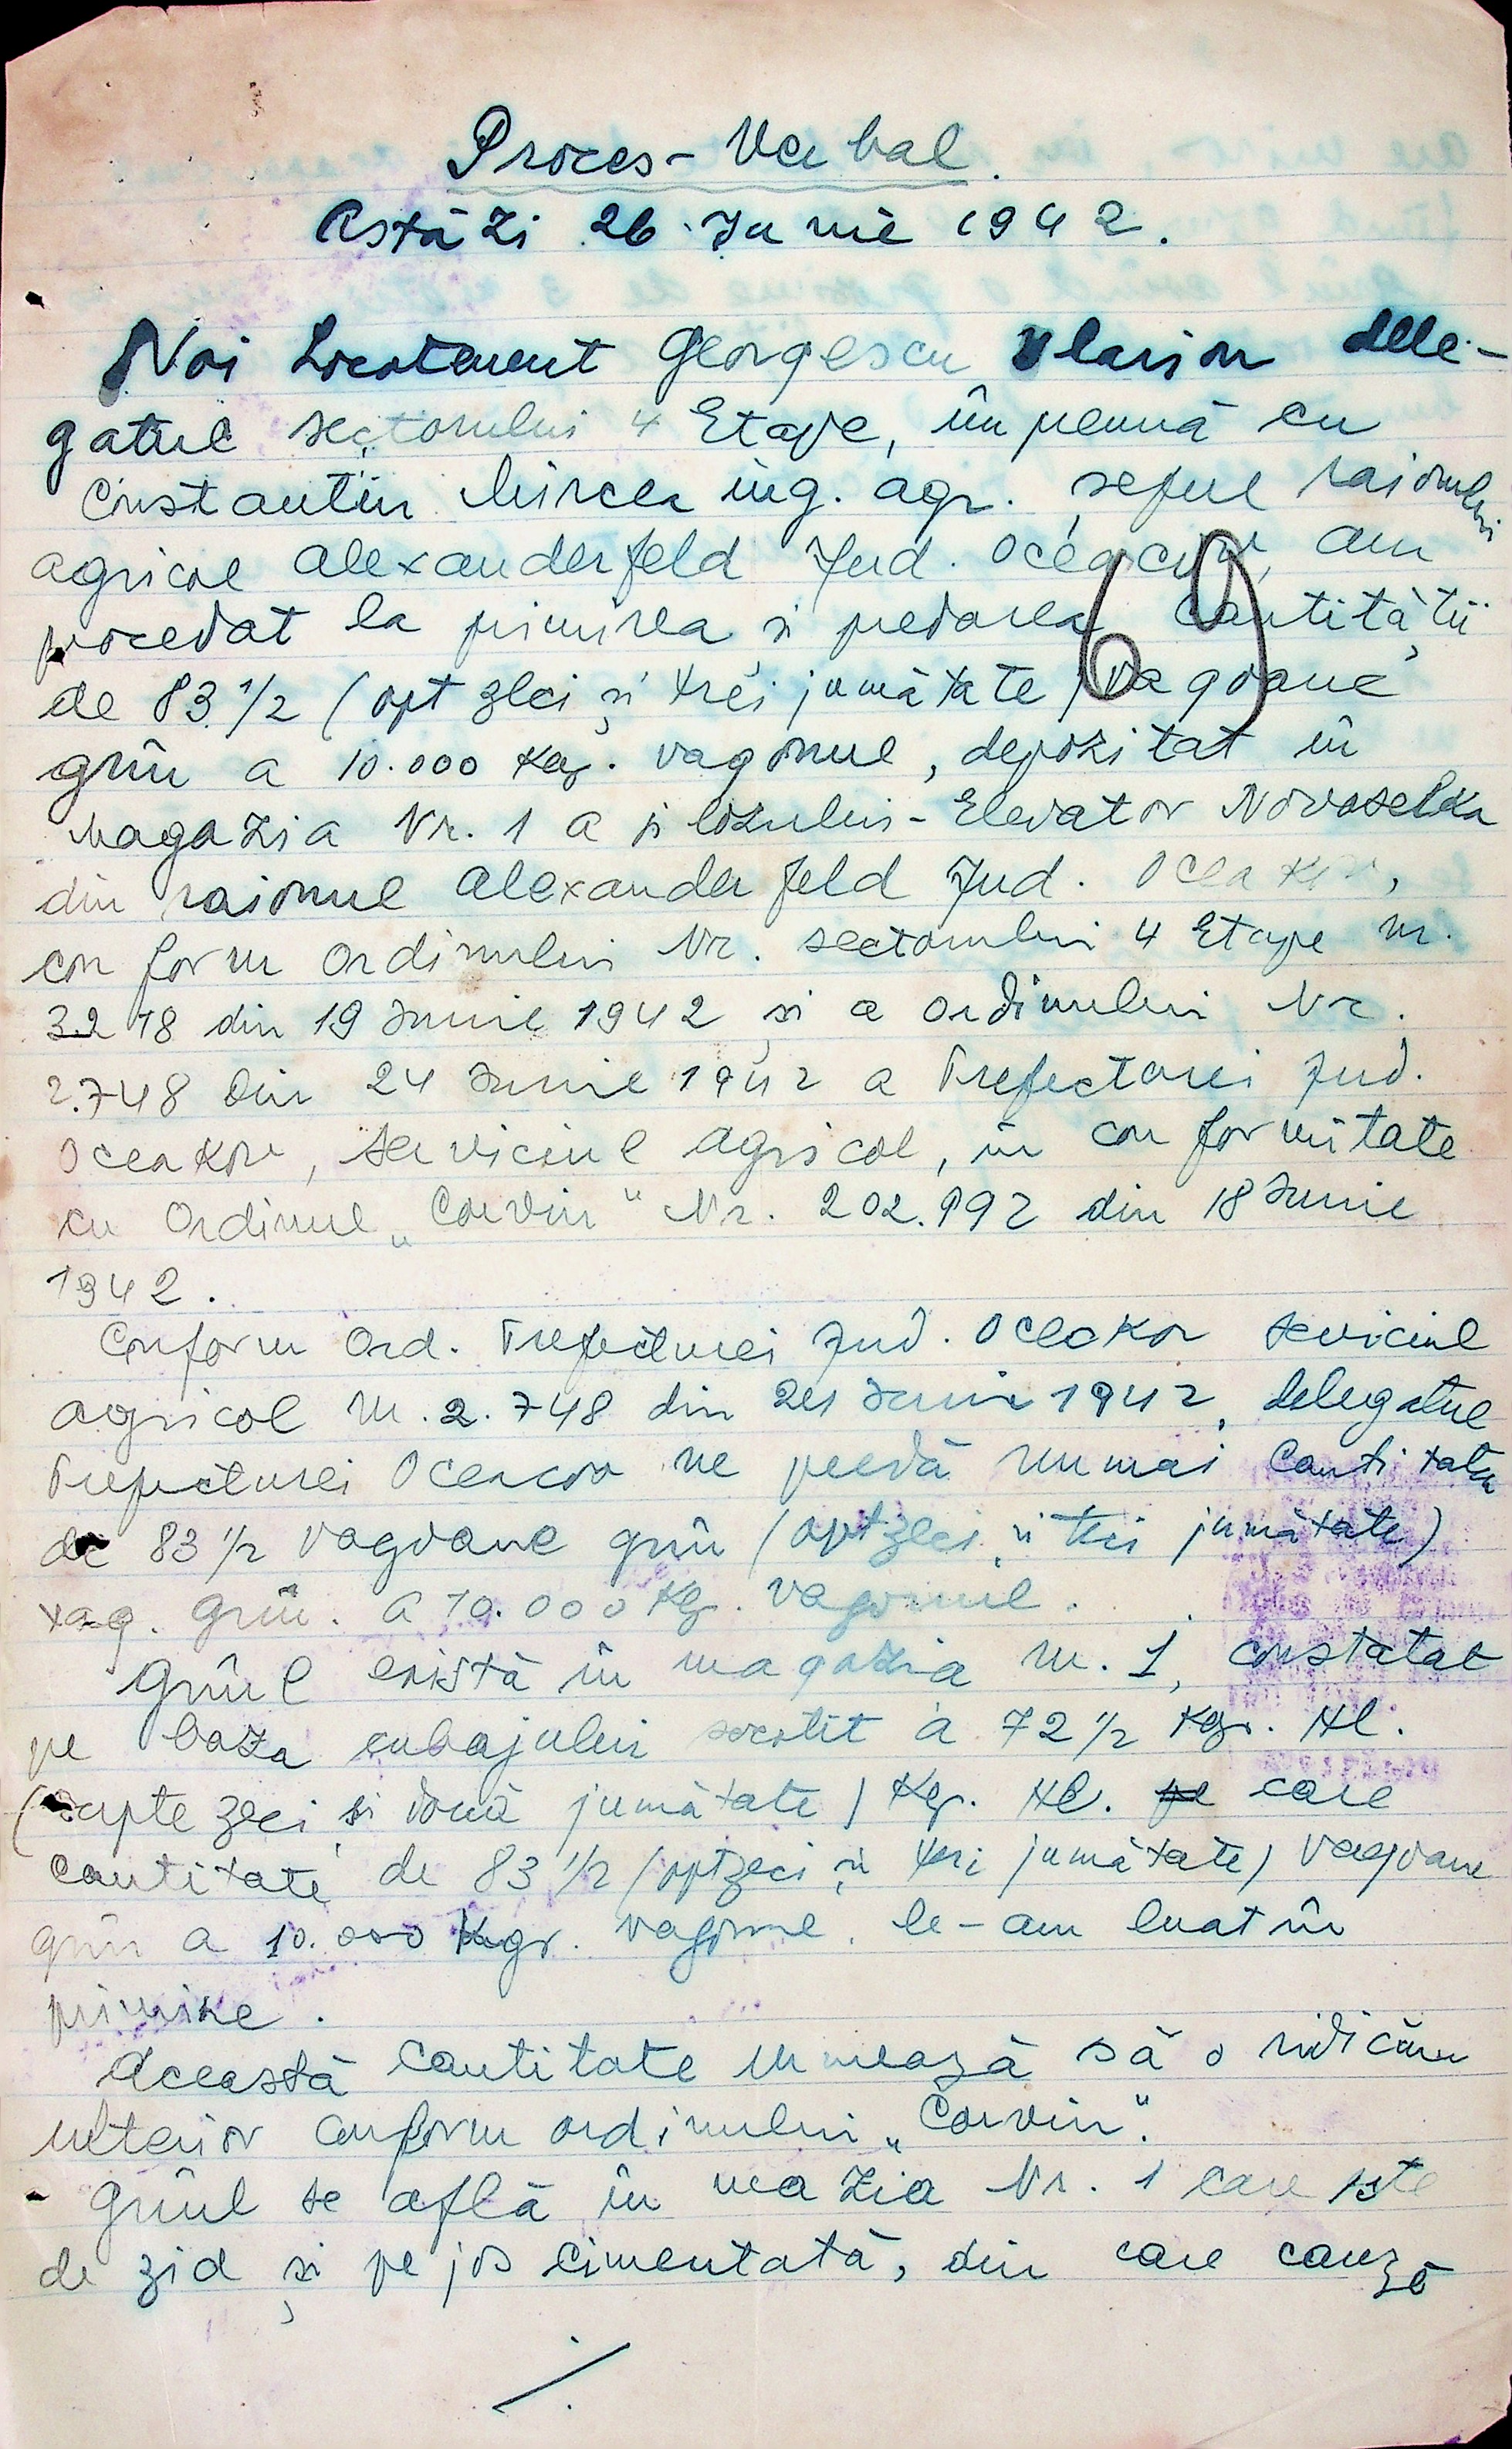 Proces-Verbal.
Astăzi 26 Junie 1942.
Noi Locotenent Georgescu Ilarion dele-
gatul sectorului 4 Etape, în preună cu
Constantin Mircea ing. agr. șeful raionului
agricol Alexanderfeld Jud. Oceacov, am
procedat la primirea și predarea cantității
de 83 1/2 (opt zeci și trei jumătate) vagoane
grîu a 10.000 Kgr. vagonul, depozitat în
Magazia Nr. 1 a silozului-Elevator Novoselka
din raionul Alexanderfeld Jud. Oceakov,
conform Ordinului Nr. sectorului 4 Etape nr.
3218 din 19 Junie 1942 și a ordinului Nr.
2.748 din 24 Junie 1942 a Prefectorei Jud.
Oceakov, Serviciul agricol, în conformitate
cu Ordinul „Corvin" Nr. 202.992 din 18 Junie
1942.
Conform Ord. Prefecturei Jud. Oceakov Serviciul
agricol nr. 2.748 din 24 Junie 1942, delegatul
Prefecturei Oceacov ne predă numai cantitatea
de 83 1/2 vagoane grîu (optzeci și trei jumătate)
vag. grîu. a 10.000 Kg. vagonul.
Grîul există în magazia nr. 1, constatat
pe baza cubajului socotit a 72 1/2 Kgr. Hl.
(șapte zeci și două jumătate) Kgr. Hl. pe care
cantitate de 83 1/2 (optzeci și trei jumătate) vagoane
grîu a 10.000 Kgr. vagonul, le-am luat în
primire.
Această cantitate urmează să o ridicăm
ulterior conform ordinului „Corvin".
Grîul se află în mazia Nr. 1 care este
de zid și pe jos cimentată, din care cauză
./.